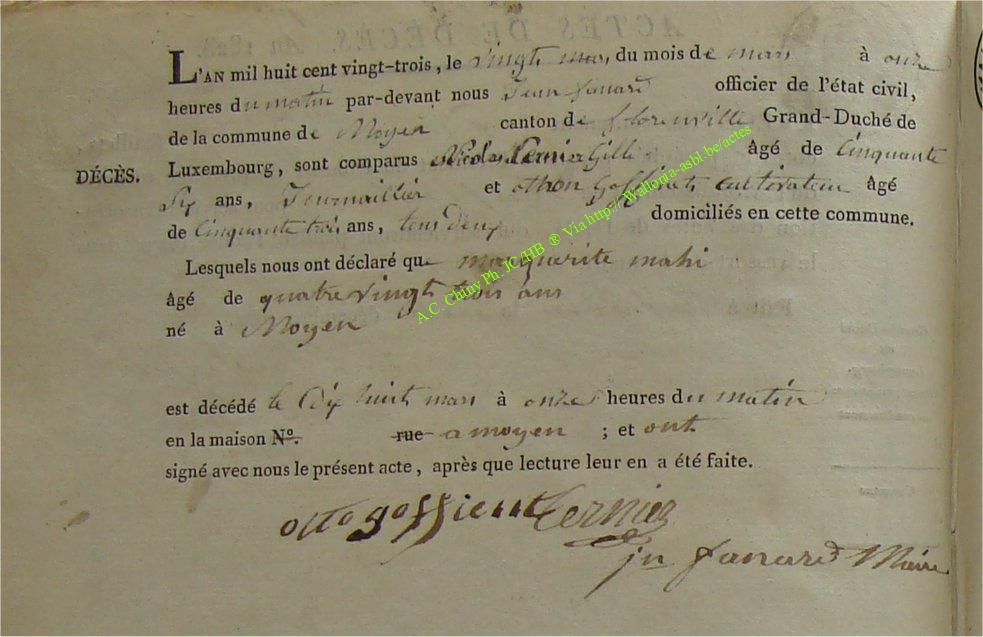 L'AN mil huit cent vingt-trois, le vingt mars du mois de mars à onze
heures du matin par-devant nous Jean fanard officier de l'état civil,
de la commune de Moyen canton de florenville Grand-Duché de
DÉCÈS. Luxembourg, sont comparus Nicolas Gilles Âgé de Cinquante
Six ans, Journaillier et othon Goffient cultivateur âgé
de Cinquante trois ans, tous deux domiciliés en cette commune.
Lesquels nous ont déclaré que marguerite mahi
âgé de quatre vingt trois ans
né à Moyen
est décédé le Dix huit mars à onze heures du matin
en la maison No. rue a moyen ; et ont
signé avec nous le présent acte, après que lecture leur en a été faite.
otto goffient Cernier
jn fanard Maire
A.C. Chiny Ph. JC/HB ® Via http://Wallonia-asbl.be/actes